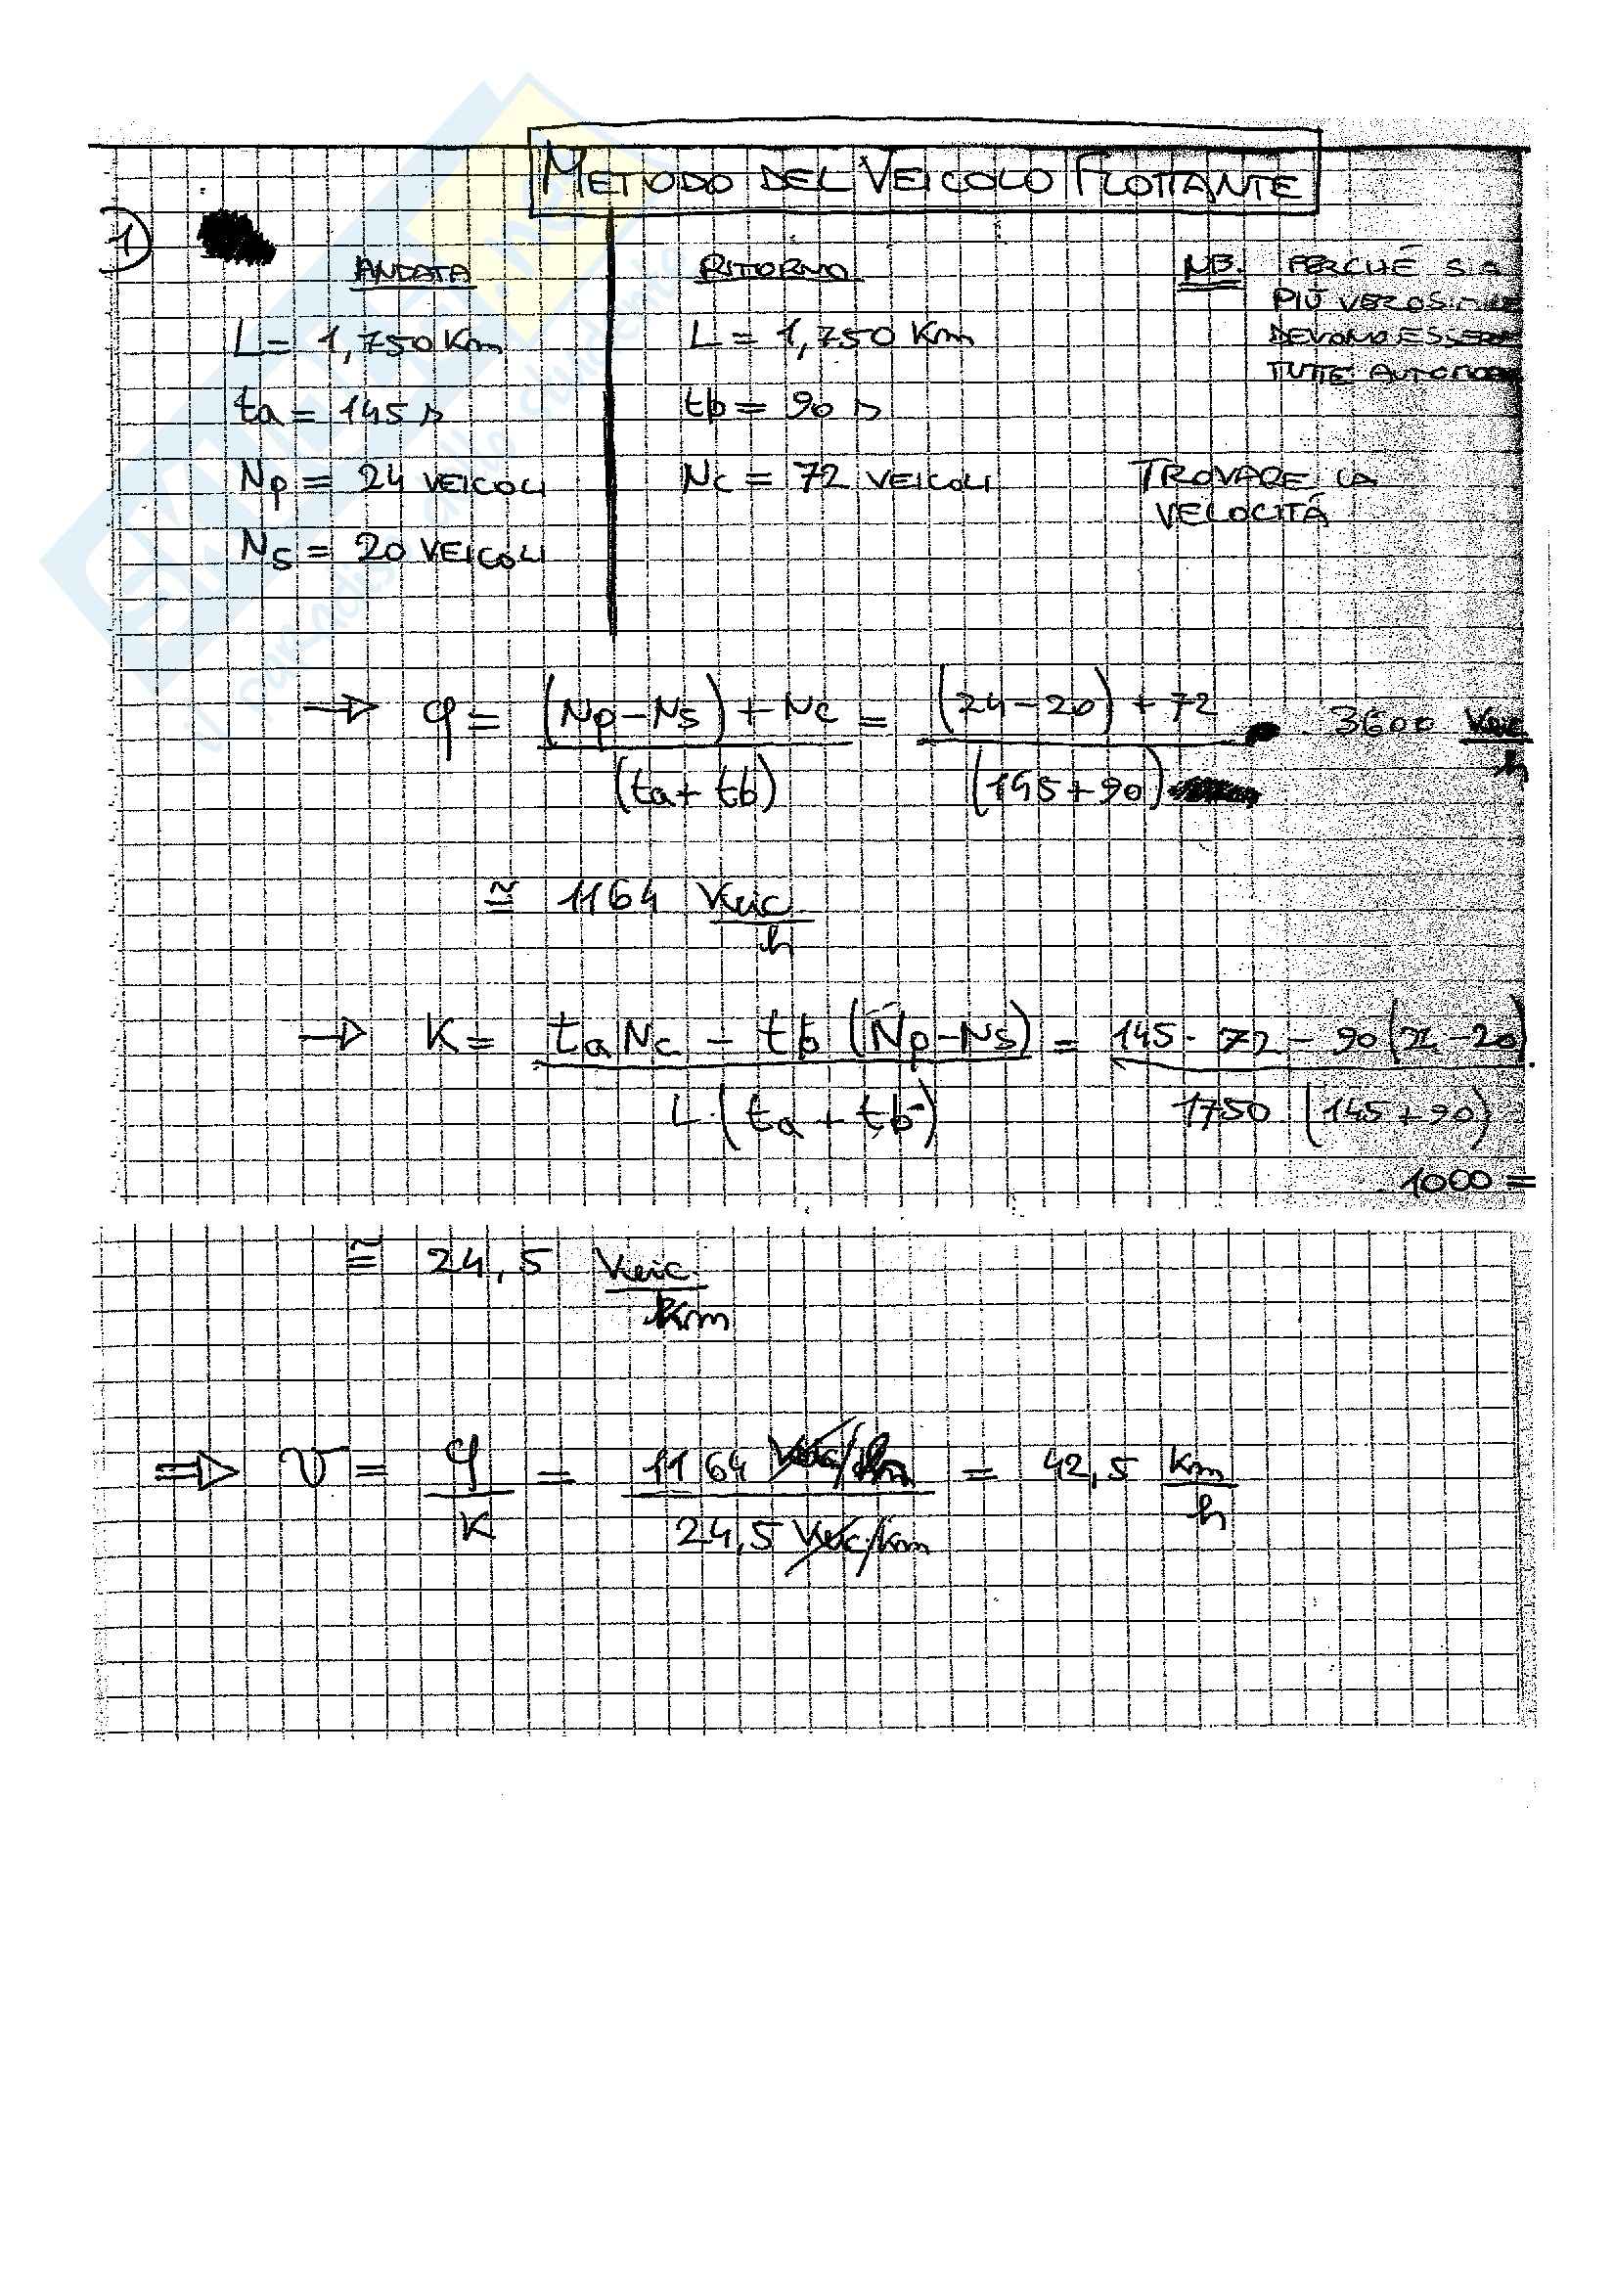 METODO DEL VEICOLO FLOTTANTE
1
ANDATA
L = 1,750 Km
ta = 145 s
Np = 24 VEICOLI
Ns = 20 VEICOLI
RITORNO
L = 1,750 Km
tb = 90 s
Nc = 72 VEICOLI
NB. PERCHÉ SIA
PIÙ VEROSIMILE
DEVONO ESSERE
TUTTE
TROVARE LA
VELOCITÁ
→ q = (Np - Ns) + Nc / (ta + tb) = (24 - 20) + 72 / (145 + 90) · 3600 Veic / h
≅ 1164 Veic / h
→ K = ta Nc - tb (Np - Ns) / L · (ta + tb) = 145 · 72 - 90 (24 - 20) / 1750 · (145 + 90) ·
· 1000 =
≅ 24,5 Veic / Km
⇒ v = q / K = 1164 Veic/h / 24,5 Veic/Km = 42,5 Km / h